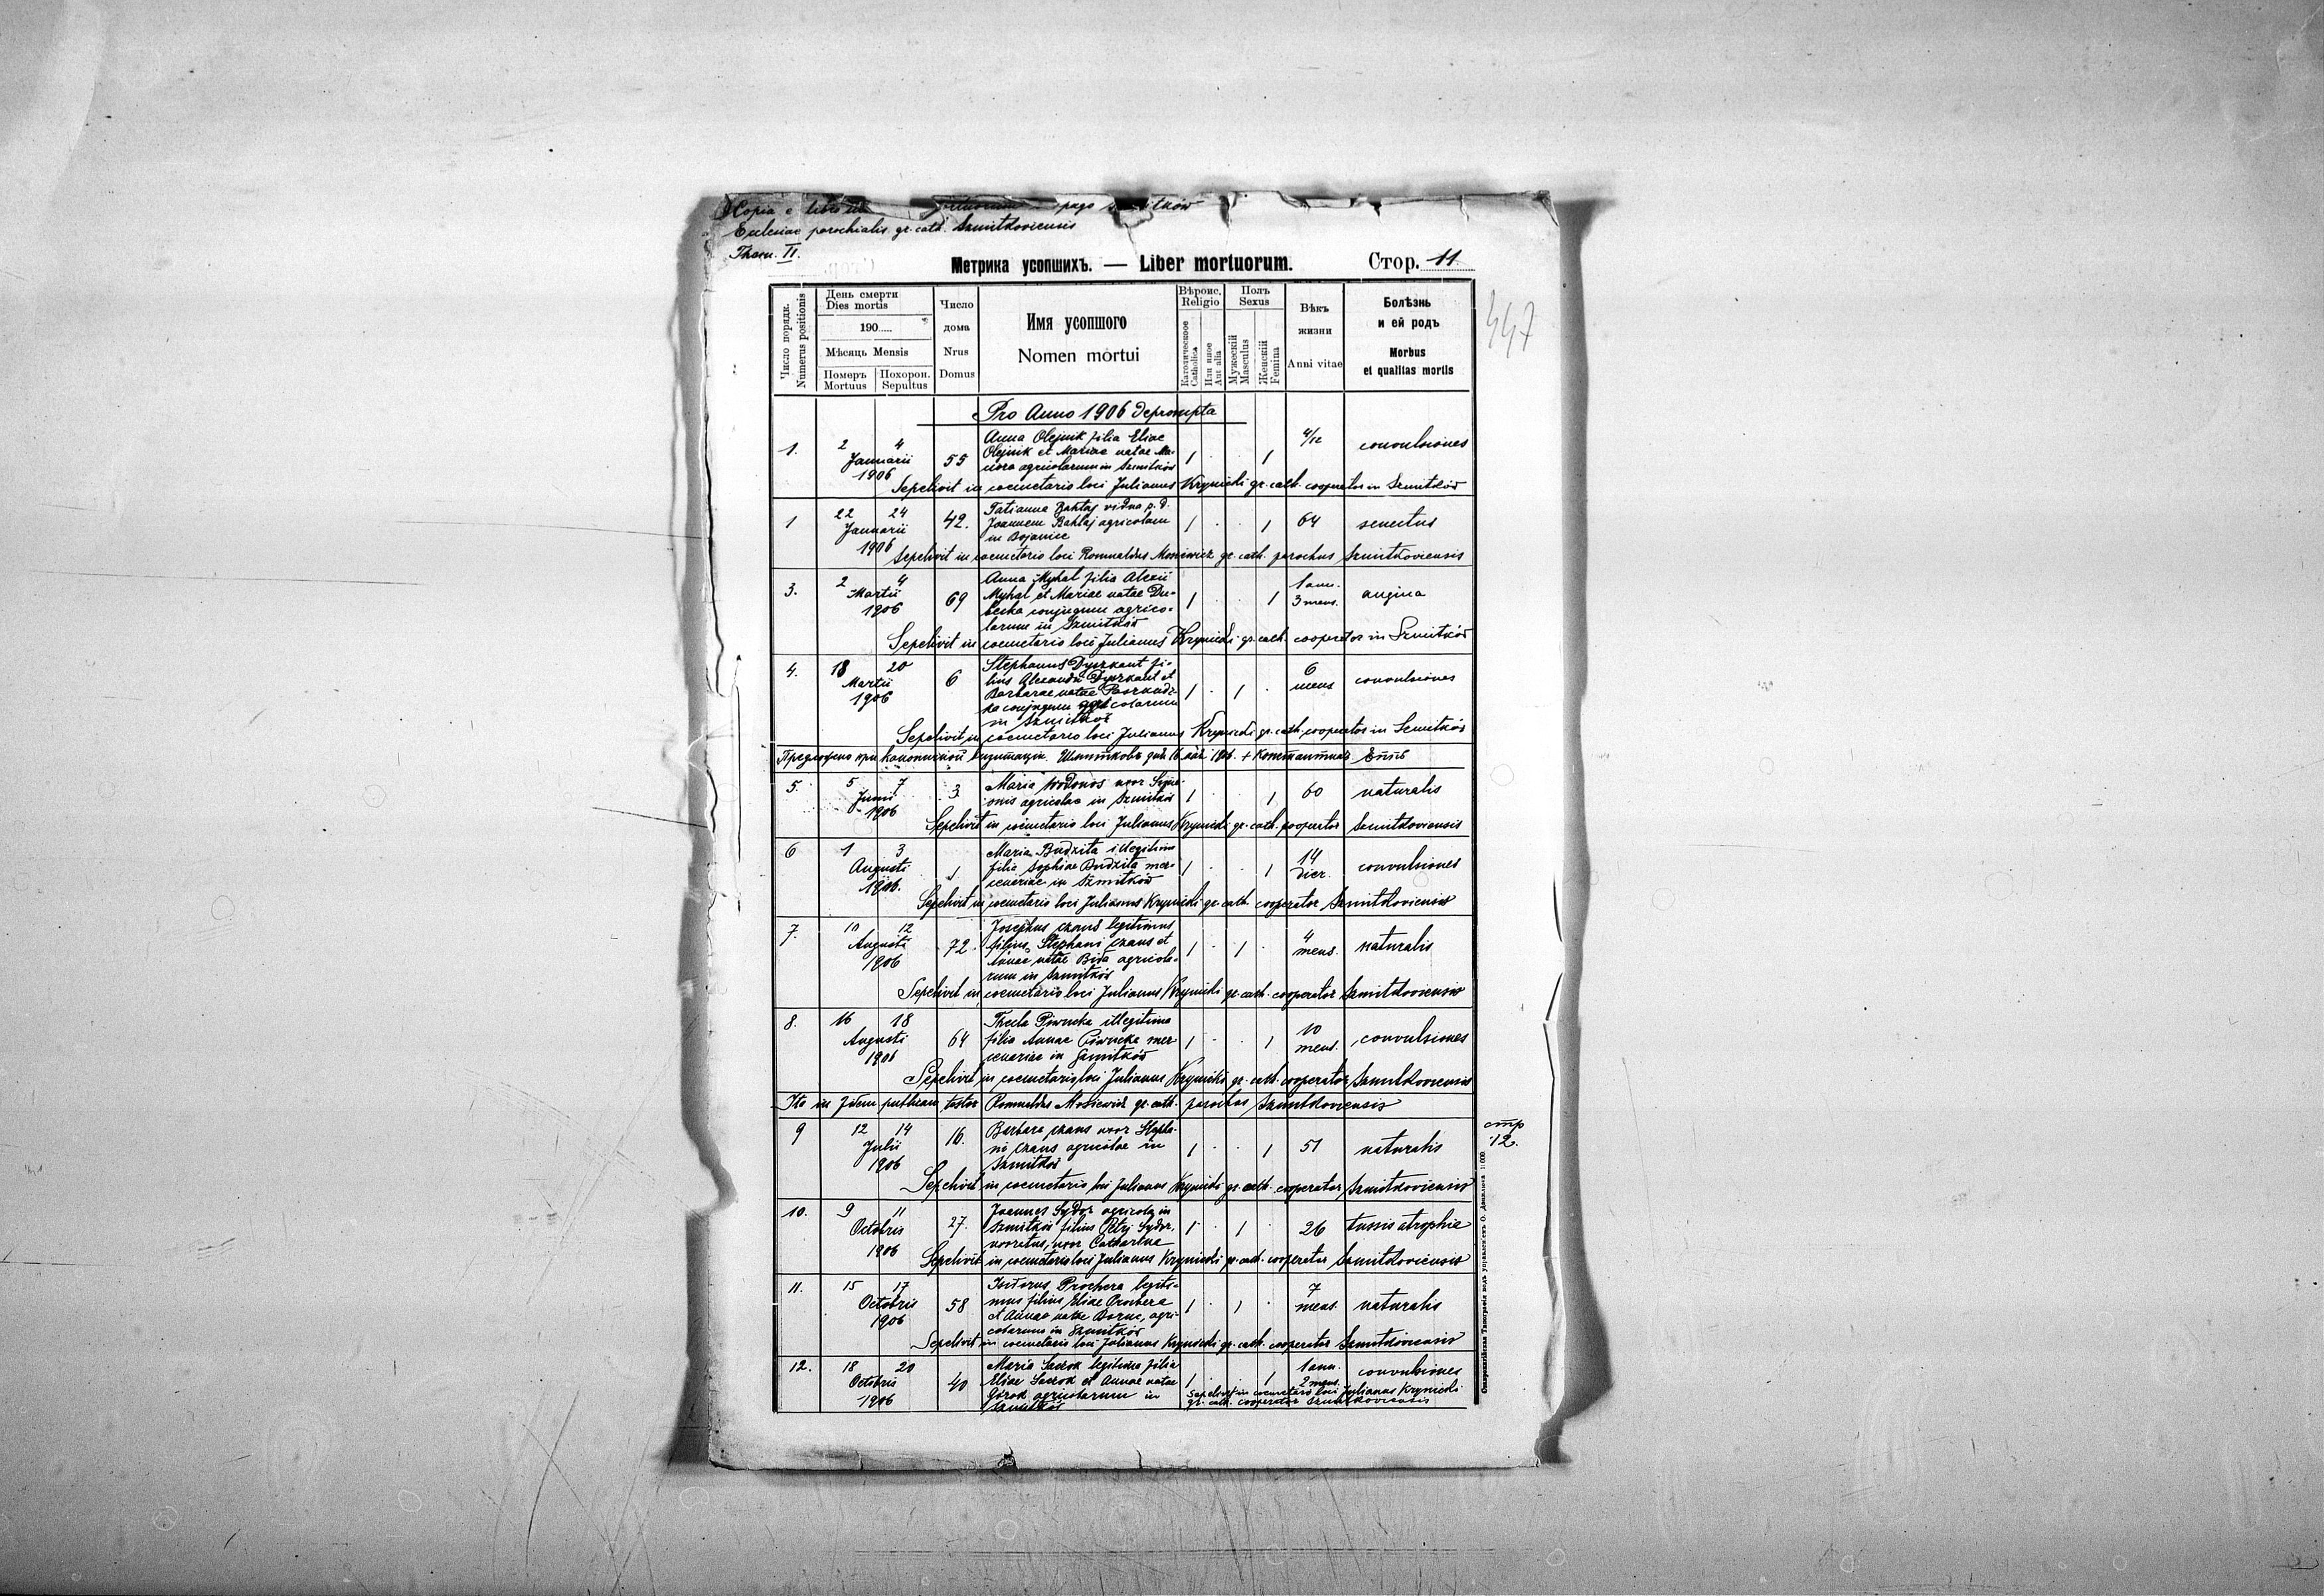 Copia e libro pago
Ecclesiae parochialis gr. cath. Szmitkoviensis
Thom. II.
Метрика усопшихъ. — Liber mortuorum.
Стор. 11
447
Число порядк.
Numerus positionis
День смерти
Dies mortis
190.....
Мѣсяць Mensis
Померъ
Mortuus
Похорон.
Sepultus
Число
дома
Nrus
Domus
Имя усопшого
Nomen mortui
Вѣроис.
Religio
Католическое
Catholica
Или иное
Aut alia
Полъ
Sexus
Мужескій
Masculus
Женскій
Femina
Вѣкъ
жизни
Anni vitae
Болѣзнь
и ей родъ
Morbus
et qualitas mortis
Pro Anno 1906 deprompta
1. 2 4 Januarii 1906 55
Anna Olejnik filia Eliae
Olejnik et Mariae natae Ma-
agricolarum in Szmitków
1 . . 1 4/12 convulsiones
Sepelivit in coemetario loci Julianus Krynicki gr. cath. cooperator in Szmitków
1 22 24 Januarii 1906 42.
Tatianna Bahtaj vidua p. d.
Joannem Bahtaj agricolam
in Bojanice
1 . . 1 64 senectus
Sepelivit in coemetario loci Romualdus Mosiewicz gr. cath. parochus Szmitkoviensis
3. 2 4 Martii 1906 69
Anna Myhal filia Alexii
Myhal et Mariae natae Du-
becka conjugum agrico-
larum in Szmitków
1 . . 1 1 ann. 3 mens. angina
Sepelivit in coemetario loci Julianus Krynicki gr. cath. cooperator in Szmitków
4. 18 20 Martii 1906 6
Stephanus Dyszkant fi-
lius Alexandri Dyszkant et
Barbarae natae
ka conjugum agricolarum
in Szmitków
1 . 1 . 6 mens convulsiones
Sepelivit in coemetario loci Julianus Krynicki gr. cath. cooperator in Szmitków
Предложено при канонической визитаціи. Шмитковъ дня 16 мая 1906. + Константинъ Еппъ
5. 5 7 Junii 1906 3
Maria Wodonos uxor Syme-
onis agricolae in Szmitków
1 . . 1 60 naturalis
Sepelivit in coemetario loci Julianus Krynicki gr. cath. cooperator Szmitkoviensis
6 1 3 Augusti 1906. 1
Maria Budzita illegitima
filia Sophiae Budzita mer-
cenariae in Szmitków
1 . . 1 14 dier. convulsiones
Sepelivit in coemetario loci Julianus Krynicki gr. cath. cooperator Szmitkoviensis
7. 10 12 Augusti 1906 72
Josephus legitimus
filius Stephani et
Annae natae Bida agricola-
rum in Szmitków
1 . 1 . 4 mens. naturalis
Sepelivit in coemetario loci Julianus Krynicki gr. cath. cooperator Szmitkoviensis
8. 16 18 Augusti 1906 64
Thecla Piwnicka illegitima
filia Annae Piwnicka mer-
cenariae in Szmitków
1 . . 1 10 mens. convulsiones
Sepelivit in coemetario loci Julianus Krynicki gr. cath. cooperator Szmitkoviensis
Ita in fidem publicam testor Romualdus Mosiewicz gr. cath. parochus Szmitkoviensis
9 12 14 Julii 1906 16.
Barbara uxor Stepha-
ni agricolae in
Szmitków
1 . . 1 51 naturalis
стр
12.
Sepelivit in coemetario loci Julianus Krynicki gr. cath. cooperator Szmitkoviensis
10. 9 11 Octobris 1906 27.
Joannes Sydor agricola in
Szmitków filius Petri Sydor,
uxoratus, uxor Catharina
1 . 1 . 26 tussis atrophia
Sepelivit in coemetario loci Julianus Krynicki gr. cath. cooperator Szmitkoviensis
11. 15 17 Octobris 1906 58
Isidorus Prochera legiti-
mus filius Eliae Prochera
et Annae natae agri-
colarum in Szmitków
1 . 1 . 7 mens. naturalis
Sepelivit in coemetario loci Julianus Krynicki gr. cath. cooperator Szmitkoviensis
12. 18 20 Octobris 1906 40
Maria legitima filia
Eliae et Annae natae
agricolarum in
Szmitków
1 . . 1 1 ann. 2 mens. convulsiones
Sepelivit in coemetario loci Julianus Krynicki
gr. cath. cooperator Szmitkoviensis